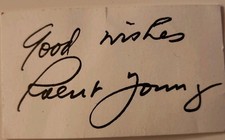 Good wishes
Robert Young